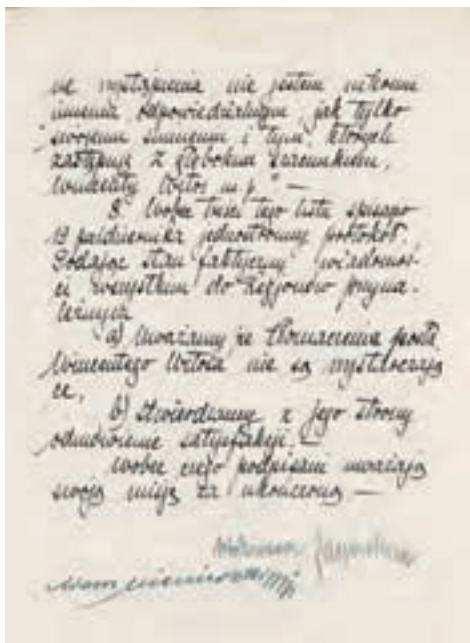 ne wystąpienia nie jestem nikomu
innemu odpowiedzialnym jak tylko
swojemu sumieniu i tym, których
zastępuję z głębokim szacunkiem,
Wincenty Witos m.p." —
8. Wobec treści tego listu spisano
19 października jednostronny protokół,
Podając stan faktyczny wiadomoś-
ci wszystkim do Legjonów przyna-
leżnych
a) Uważamy, że tłomaczenia posła
Wincentego Witosa nie są wystarczają
ce,
b) stwierdzamy z jego strony
odmówienie satysfakcji. —
Wobec czego podpisani uważają
swoją misję za ukończoną —